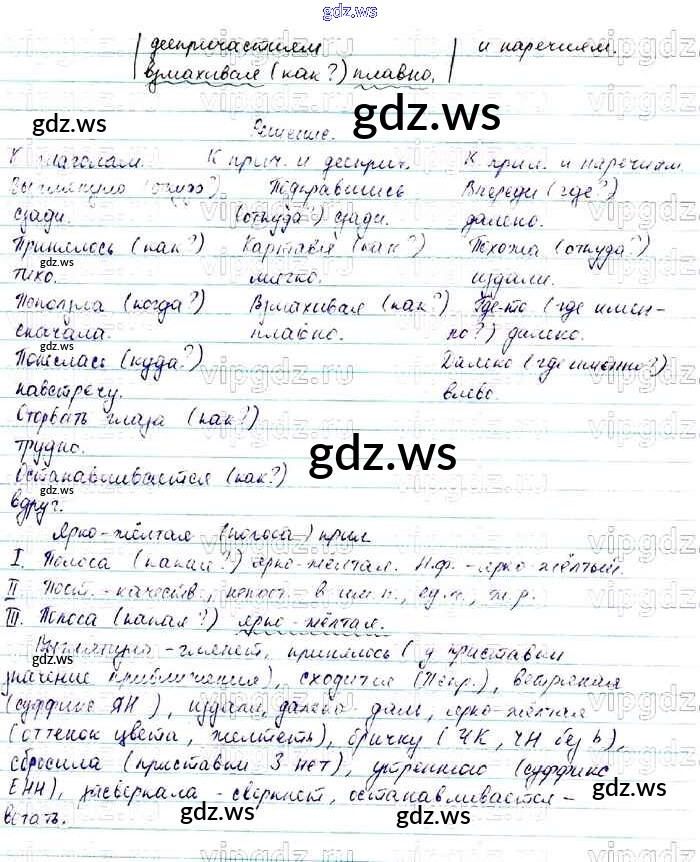 gdz.ws
деепричастиям и наречиям.
взмахивая (как?) плавно.
gdz.ws
Решение.
К глаголам. К прич. и дееприч. К прил. и наречиям.
Выглянуло (откуда?) Подкравшись Впереди (где?)
сзади. (откуда?) сзади. далеко.
Принялось (как?) Картавя (как?) Похожа (откуда?)
тихо. мягко. издали.
Поползла (когда?) Взмахивая (как?) Где-то (где имен-
сначала. плавно. но?) далеко.
Понеслась (куда?) Далеко (где именно?)
навстречу. влево.
Оторвать глаза (как?)
трудно.
Останавливается (как?)
вдруг.
Ярко-жёлтая (полоса) прил.
I. Полоса (какая?) ярко-жёлтая. Н.ф. - ярко-жёлтый.
II Пост. - качеств., непост. в им.п., ед.ч., ж.р.
III. Полоса (какая?) ярко-жёлтая.
Выглянуло - глянет, принялось (у приставки
значение приближения), сходится (Непр.), ветряная
(суффикс ЯН), издали, далеко - даль, ярко-жёлтая
(оттенок цвета, желтеть), бричку (ЧК, ЧН без ь),
сбросила (приставки З нет), утреннего (суффикс
ЕНН), засверкала - сверкнет, останавливается -
вать.
gdz.ws
gdz.ws
gdz.ws
gdz.ws
gdz.ws
gdz.ws
gdz.ws
gdz.ws